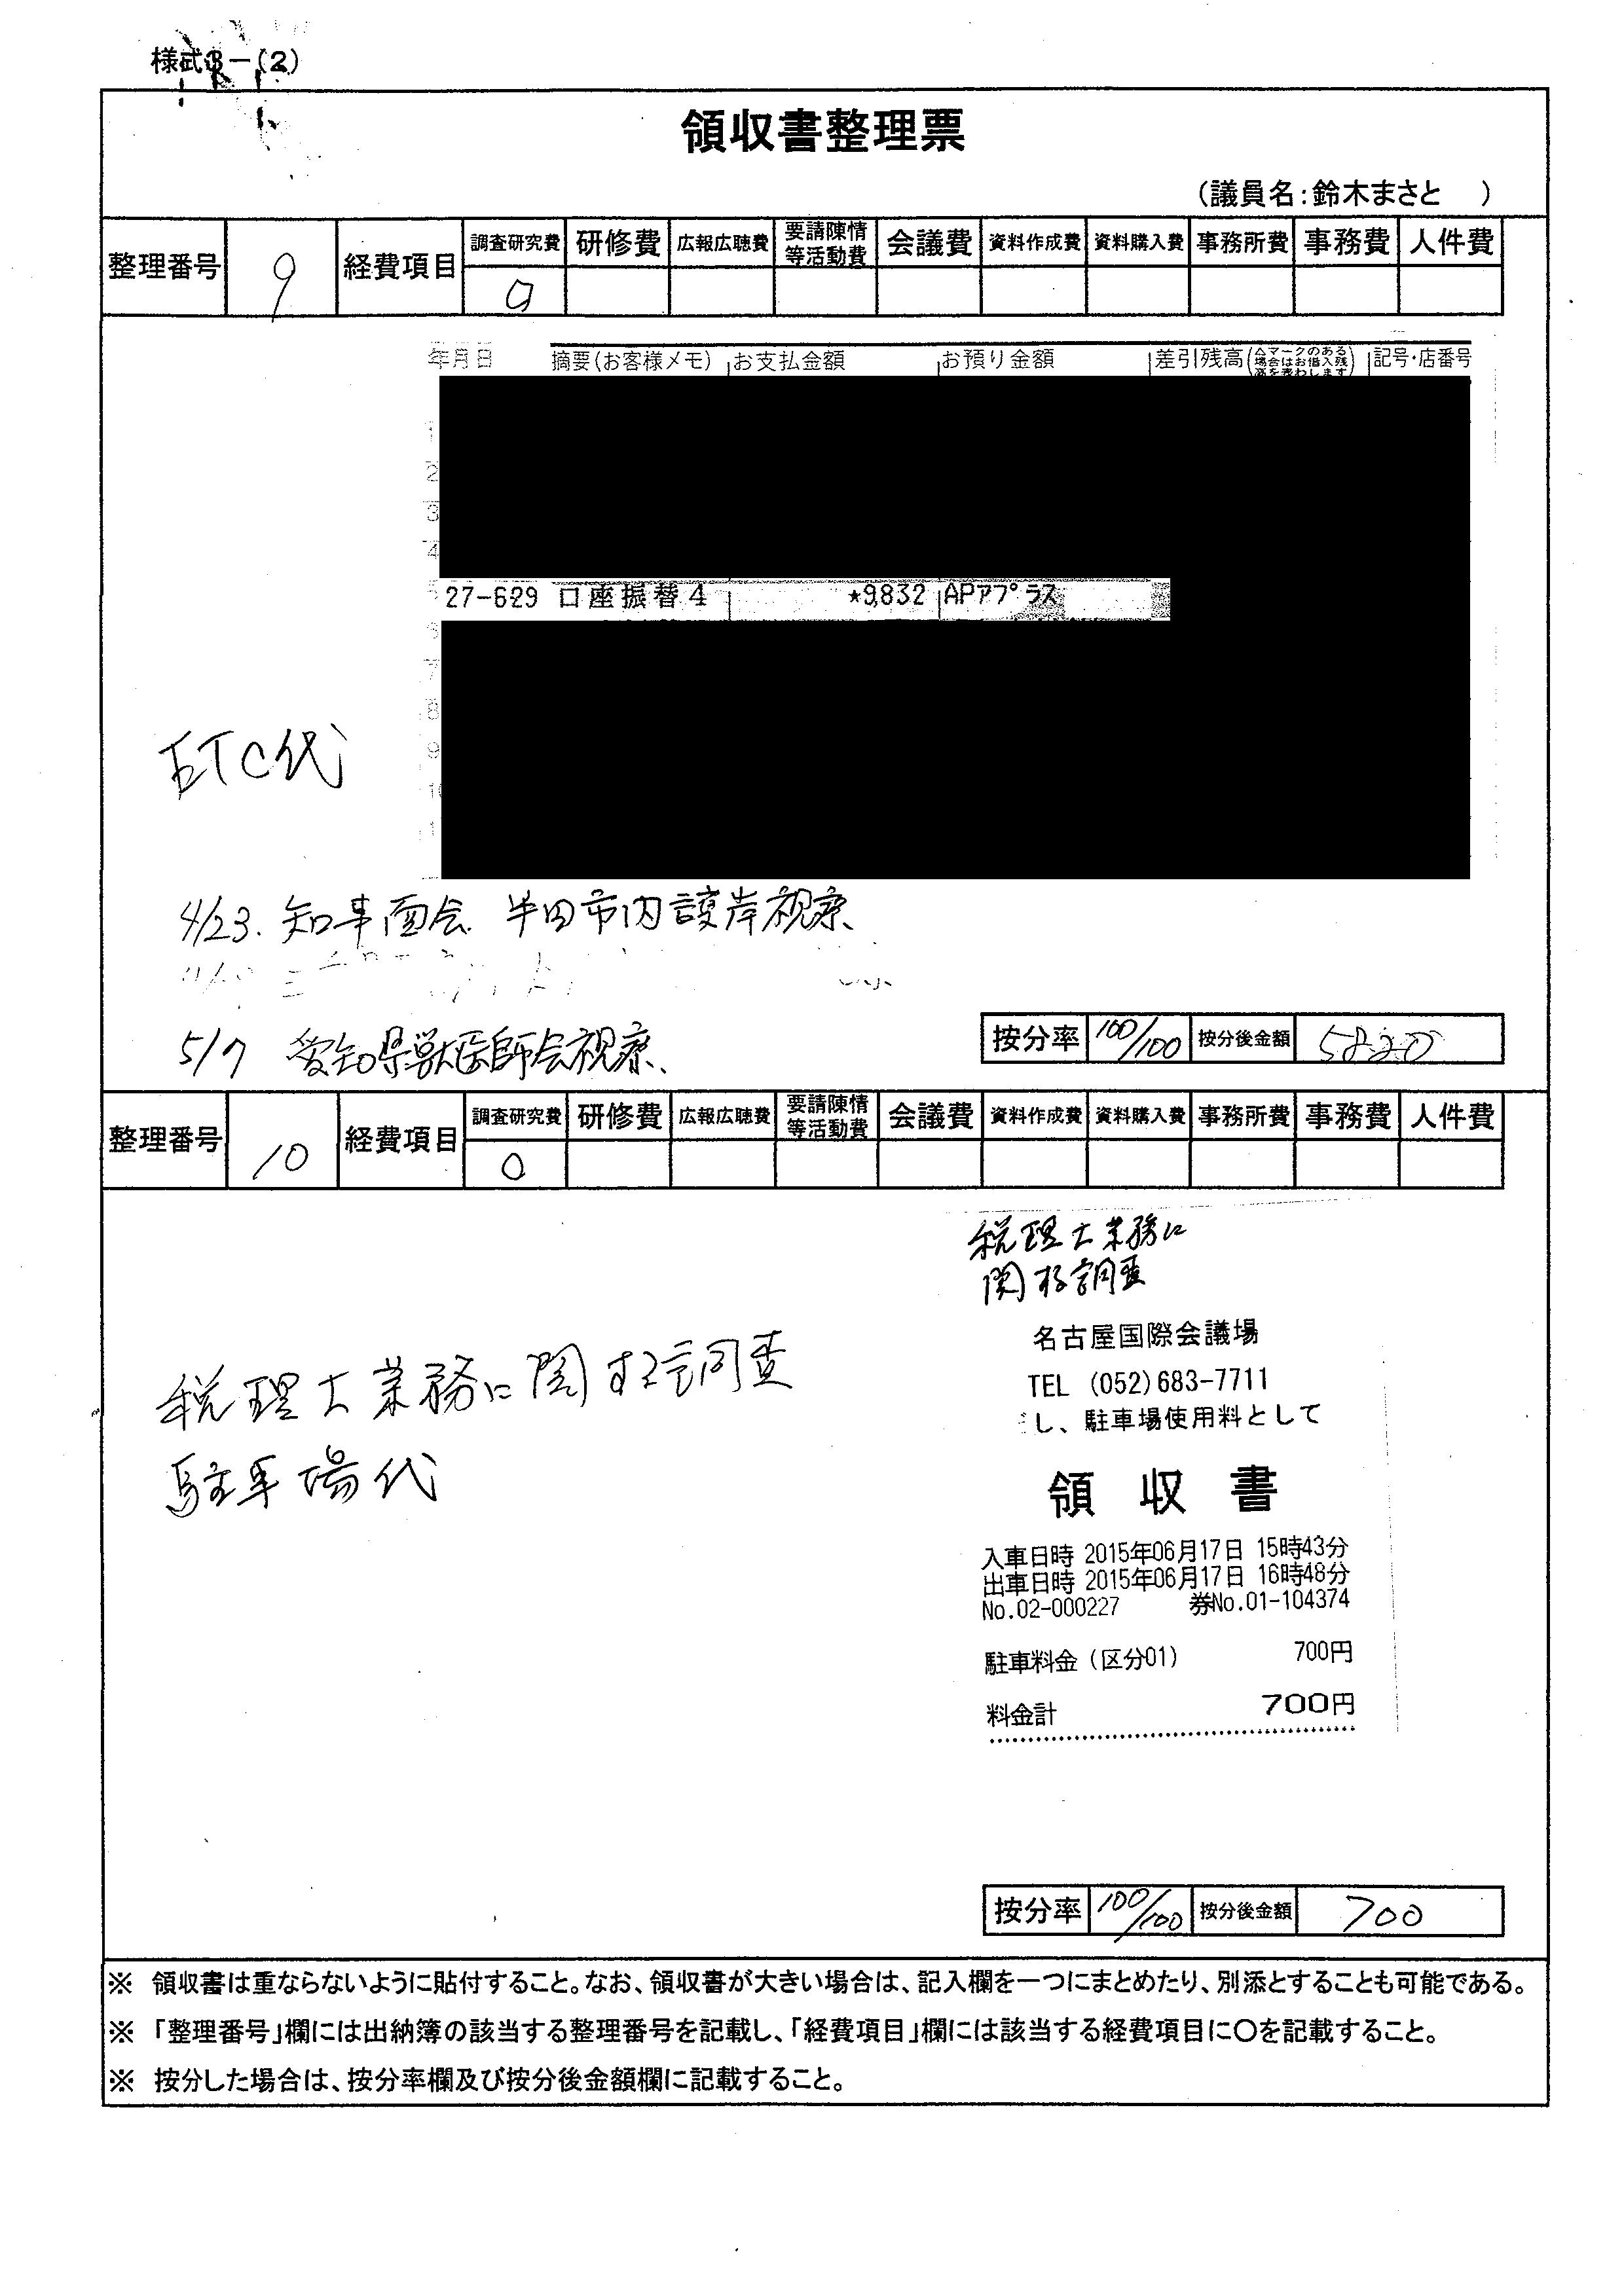 様式3－(2)
領収書整理票
(議員名:鈴木まさと )
整理番号 9 経費項目 調査研究費 研修費 広報広聴費 要請陳情等活動費 会議費 資料作成費 資料購入費 事務所費 事務費 人件費
○
年月日 摘要(お客様メモ) お支払金額 お預り金額 差引残高 記号・店番号
1
2
3
4
27-6-29 口座振替4 *9,832 APアプラス
6
7
8
9
10
1
ETC代
4/23. 知事面会 半田市内護岸視察
5/7 愛知県獣医師会視察、
按分率 100/100 按分後金額 5820
整理番号 10 経費項目 調査研究費 研修費 広報広聴費 要請陳情等活動費 会議費 資料作成費 資料購入費 事務所費 事務費 人件費
○
税理士業務に
関する調査
名古屋国際会議場
TEL (052)683-7711
し、駐車場使用料として
領収書
税理士業務に関する調査
駐車場代
入車日時 2015年06月17日 15時43分
出車日時 2015年06月17日 16時48分
No.02-000227 券No.01-104374
駐車料金(区分01) 700円
料金計 700円
按分率 100/100 按分後金額 700
※ 領収書は重ならないように貼付すること。なお、領収書が大きい場合は、記入欄を一つにまとめたり、別添とすることも可能である。
※ 「整理番号」欄には出納簿の該当する整理番号を記載し、「経費項目」欄には該当する経費項目に○を記載すること。
※ 按分した場合は、按分率欄及び按分後金額欄に記載すること。